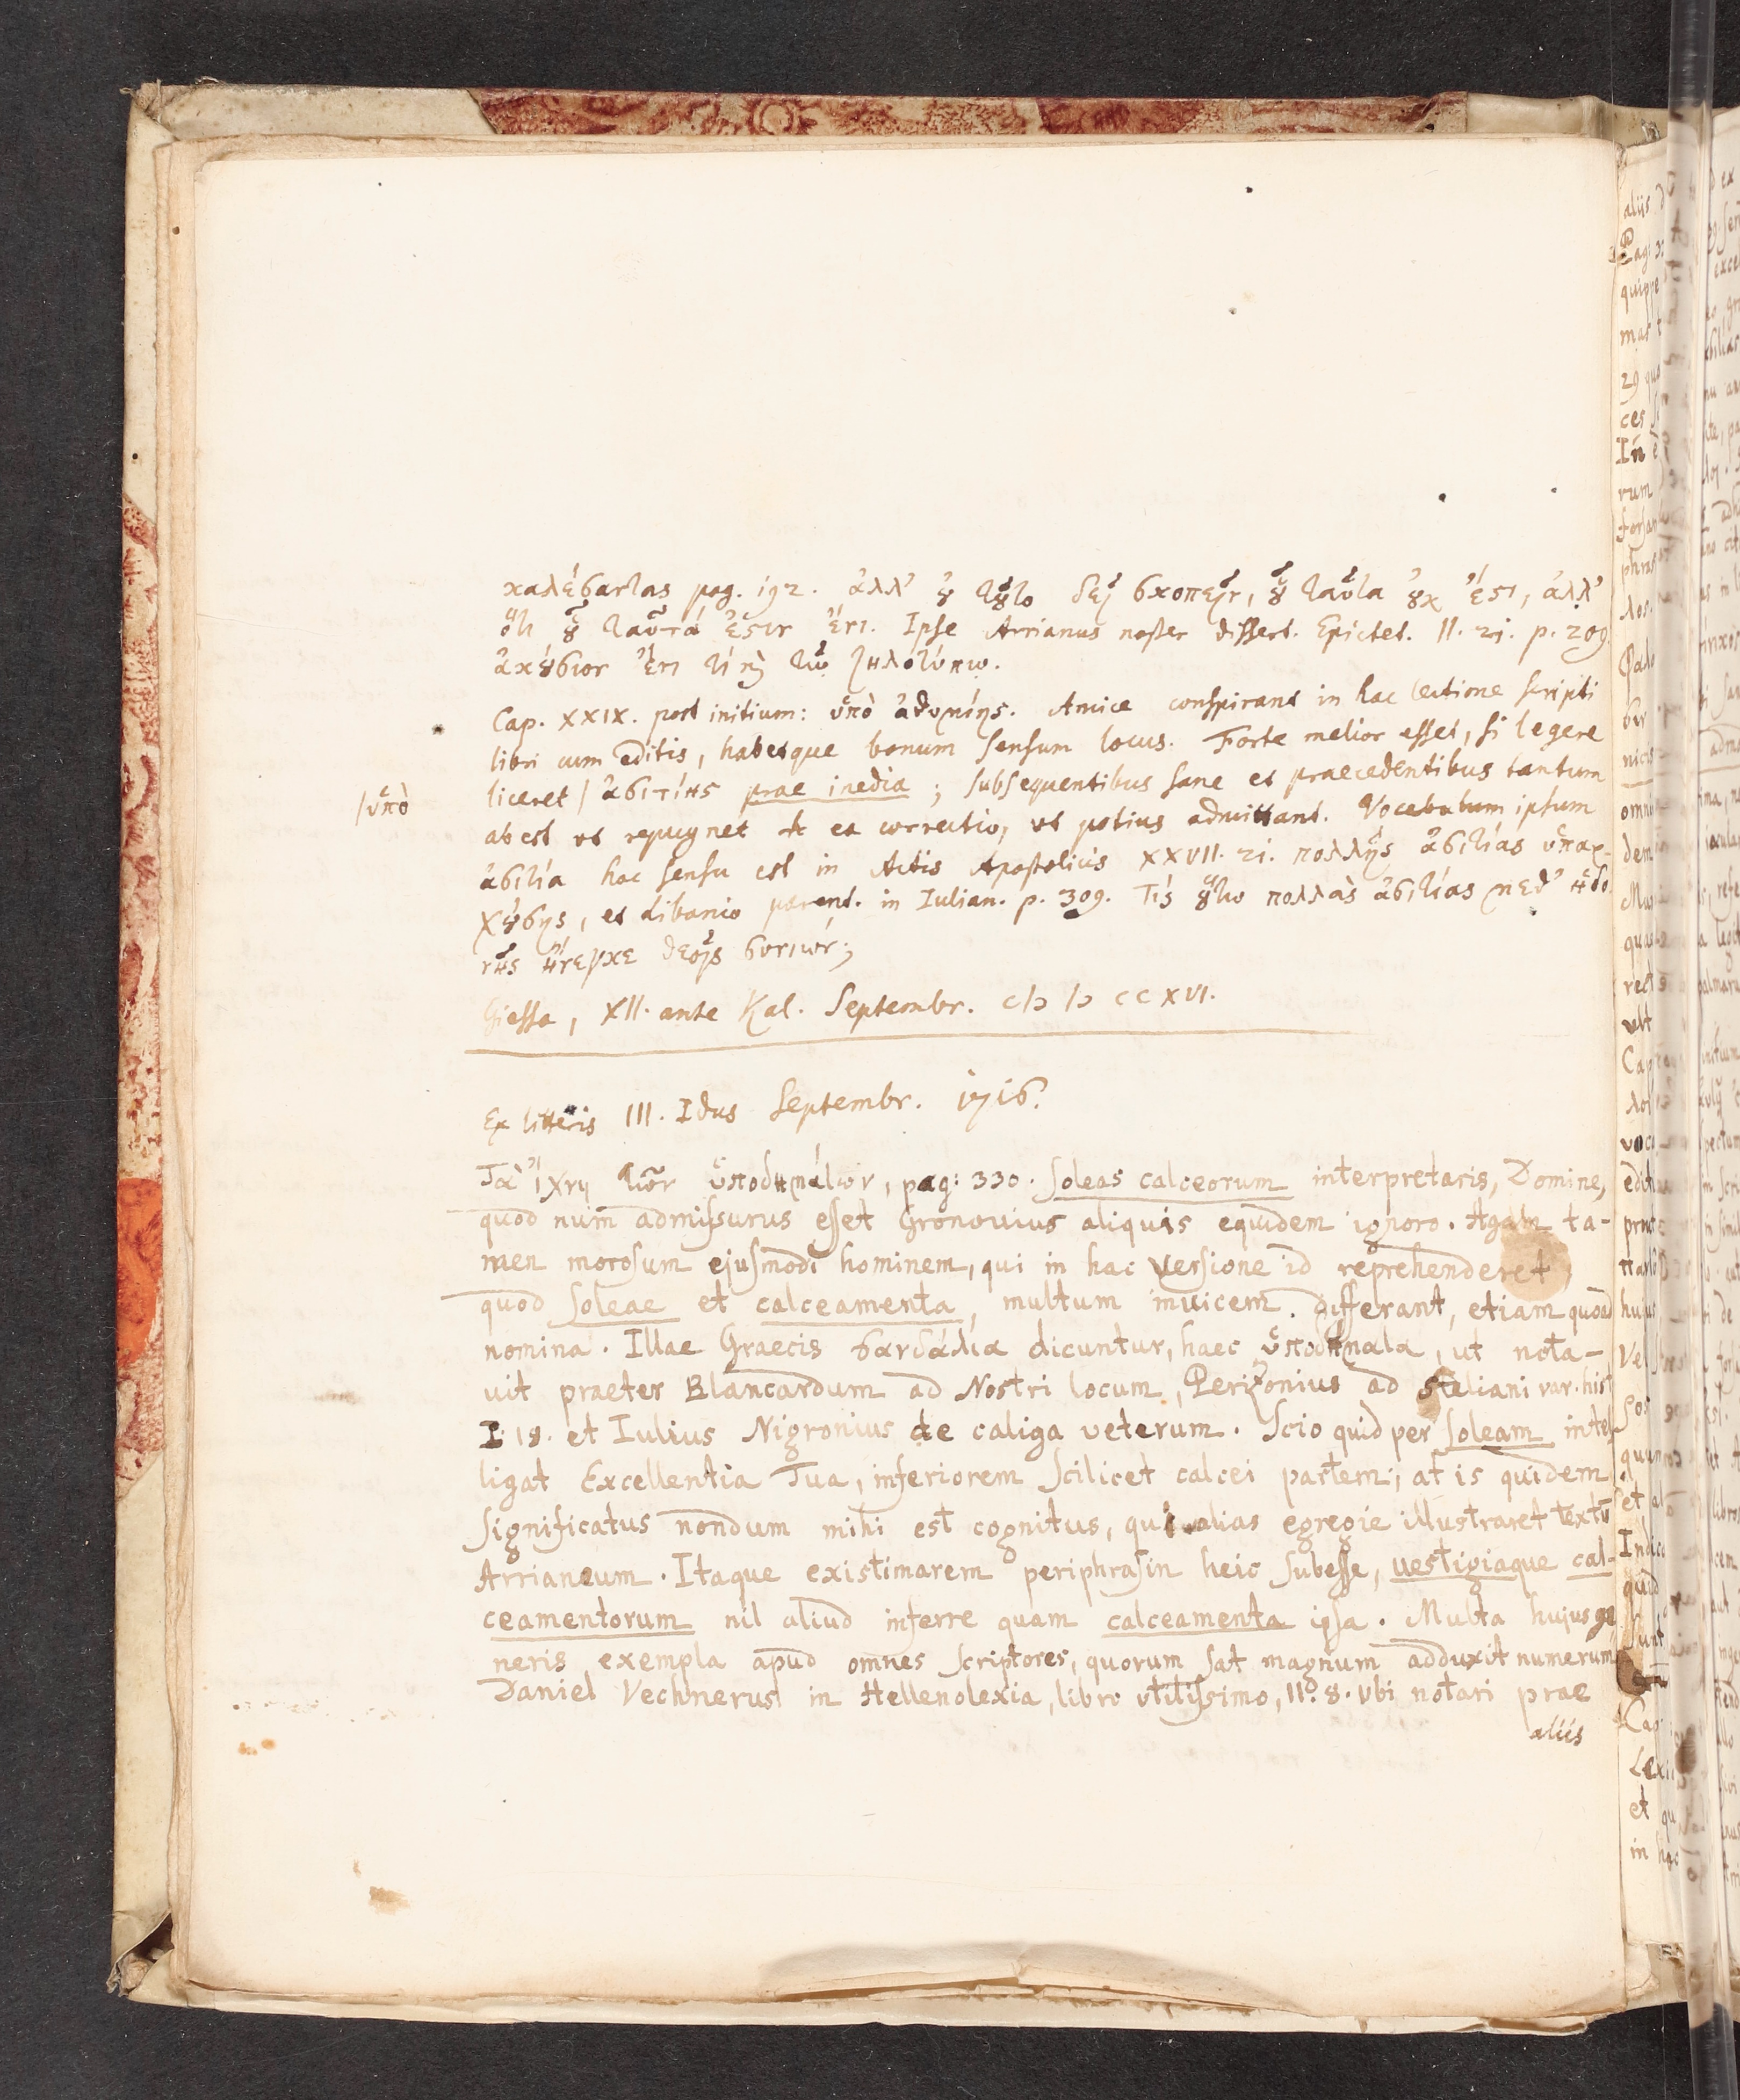 καλέσαντας pag. 192. ἀλλ' οὐ τοῦτο δεῖ σκοπεῖν, οὗ ταῦτα οὐκ ἔστι, ἀλλ'
ὅτι οὗ ταῦτά ἐστιν ἔτι. Ipse Arrianus noster dissert. Epictet. II. 21. p. 209
ἀκούσιον ἔτι τί καὶ τῷ ζηλοτύπῳ.
Cap. XXIX. post initium: ὑπὸ ἀθυμίης. Amice conspirant in hac lectione scripti
libri cum editis, habetque bonum sensum locus. Forte melior esset, si legere
liceret / ἀσιτίης prae inedia; subsequentibus sane et praecedentibus tantum
/ὑπὸ
abest ut repugnet ea correctio, ut potius admittant. Vocabulum ipsum
ἀσιτία hoc sensu est in Actis Apostolicis XXVII. 21. πολλῆς ἀσιτίας ὑπαρ-
χούσης, et Libanio parent. in Iulian. p. 309. Τίς οὕτω πολλὰς ἀσιτίας μεθ' ἡδο
νῆς ἤνεγκε θεοῖς συνιών;
Giessa, XII. ante Kal. Septembr. CIƆ IƆ CCXVI.
Ex litteris III. Idus Septembr. 1716.
Τὰ ἴχνη τῶν ὑποδημάτων, pag: 330. soleas calceorum interpretaris, Domine,
quod num admissurus esset Gronovius aliquis equidem ignoro. Agam ta-
men morosum ejusmodi hominem, qui in hac versione id reprehenderet,
quod soleae et calceamenta, multum invicem differant, etiam quoad
nomina. Illae Graecis σανδάλια dicuntur, haec ὑποδήματα, ut nota-
vit praeter Blancardum ad Nostri locum, Perizonius ad Aeliani var. hist
I. 18. et Iulius Nigronius de caliga veterum. Scio quid per soleam intel
ligat Excellentia Tua, inferiorem scilicet calcei partem; at is quidem
significatus nondum mihi est cognitus, qui alias egregie illustraret textū
Arrianeum. Itaque existimarem periphrasin heic subesse, vestigiaque cal-
ceamentorum nil aliud inferre quam calceamenta ipsa. Multa hujus ge
neris exempla apud omnes scriptores, quorum sat magnum adduxit numerum
Daniel Vechnerus in Hellenolexia, libro utilissimo, II. 8. Ubi notari prae
aliis